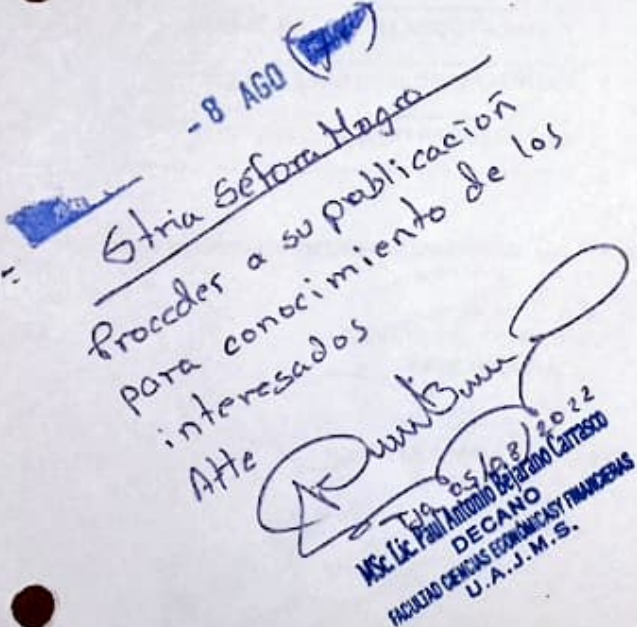 - 8 AGO
Stria Séfora Magro
Proceder a su publicación
para conocimiento de los
interesados
Atte
Tja 05/08/2022
MSc. Lic. Paul Antonio Bejarano Carrasco
DECANO
FACULTAD CIENCIAS ECONÓMICAS Y FINANCIERAS
U.A.J.M.S.